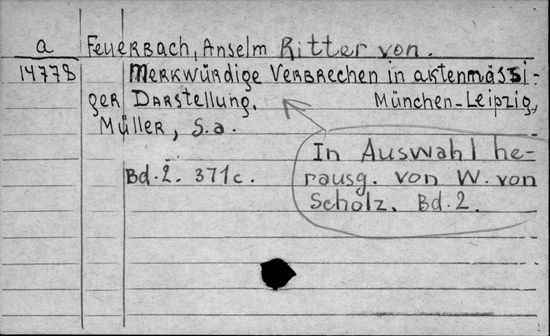 a Feuerbach, Anselm Ritter von.
14778 Merkwürdige Verbrechen in aktenmässi-
ger Darstellung. München-Leipzig,
Müller, s.a.
In Auswahl he-
Bd.2. 371c. rausg. von W. von
Scholz. Bd.2.